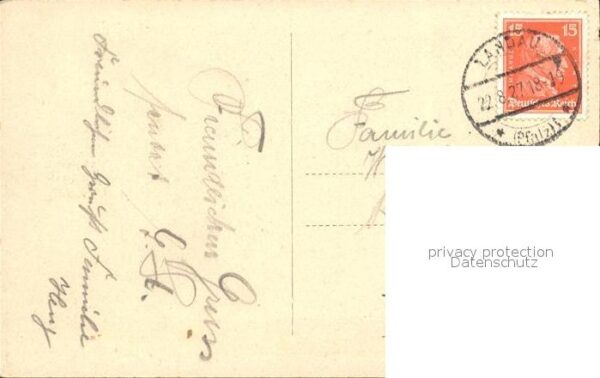 15 15
Deutsches Reich
LANDAU
22.8.27.18-19
(Pfalz)
Familie
Freundlichen Gruss
sendet
Freundlichen Gruß Familie
privacy protection
Datenschutz